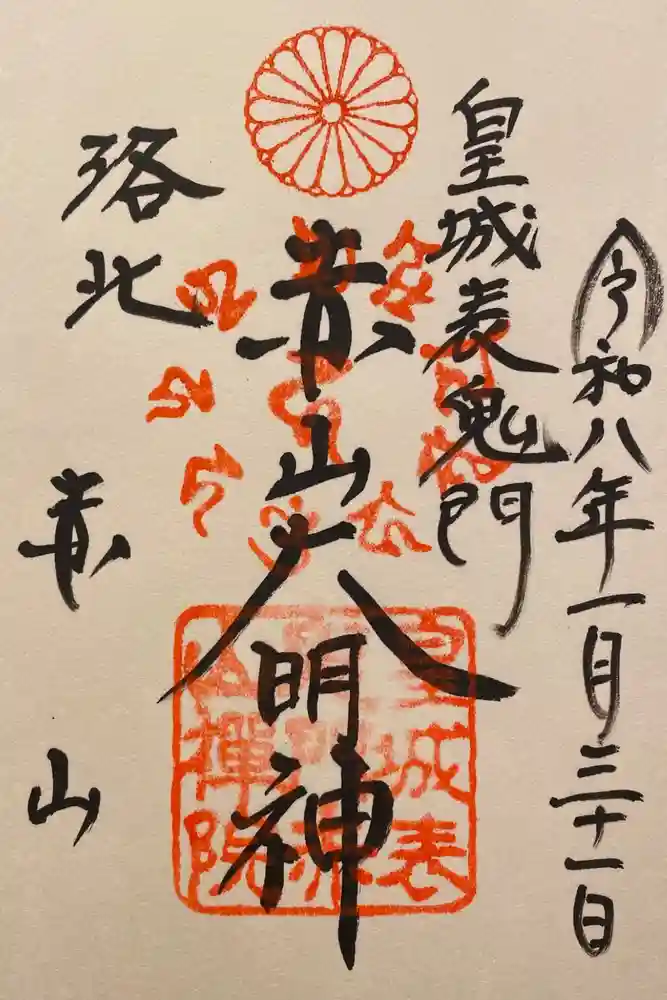 令和八年一月三十一日
皇城表鬼門
赤山大明神
洛北
赤山
皇城表
禪院